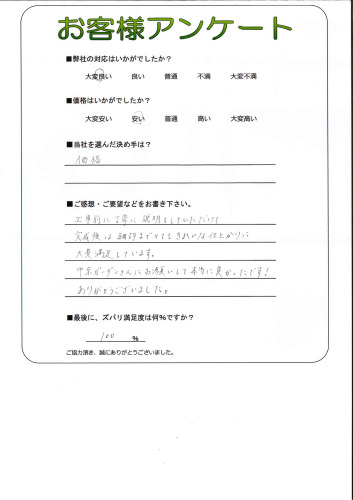 お客様アンケート
■弊社の対応はいかがでしたか?
大変良い 良い 普通 不満 大変不満
■価格はいかがでしたか?
大変安い 安い 普通 高い 大変高い
■当社を選んだ決め手は?
価格
■ご感想・ご要望などをお書き下さい。
工事前に丁寧に説明をしていただけて
完成後は細部までとてもきれいな仕上がりに
大変満足しています。
ガーデンさんにお願いして本当に良かったです!
ありがとうございました。
■最後に、ズバリ満足度は何%ですか?
100 %
ご協力頂き、誠にありがとうございました。